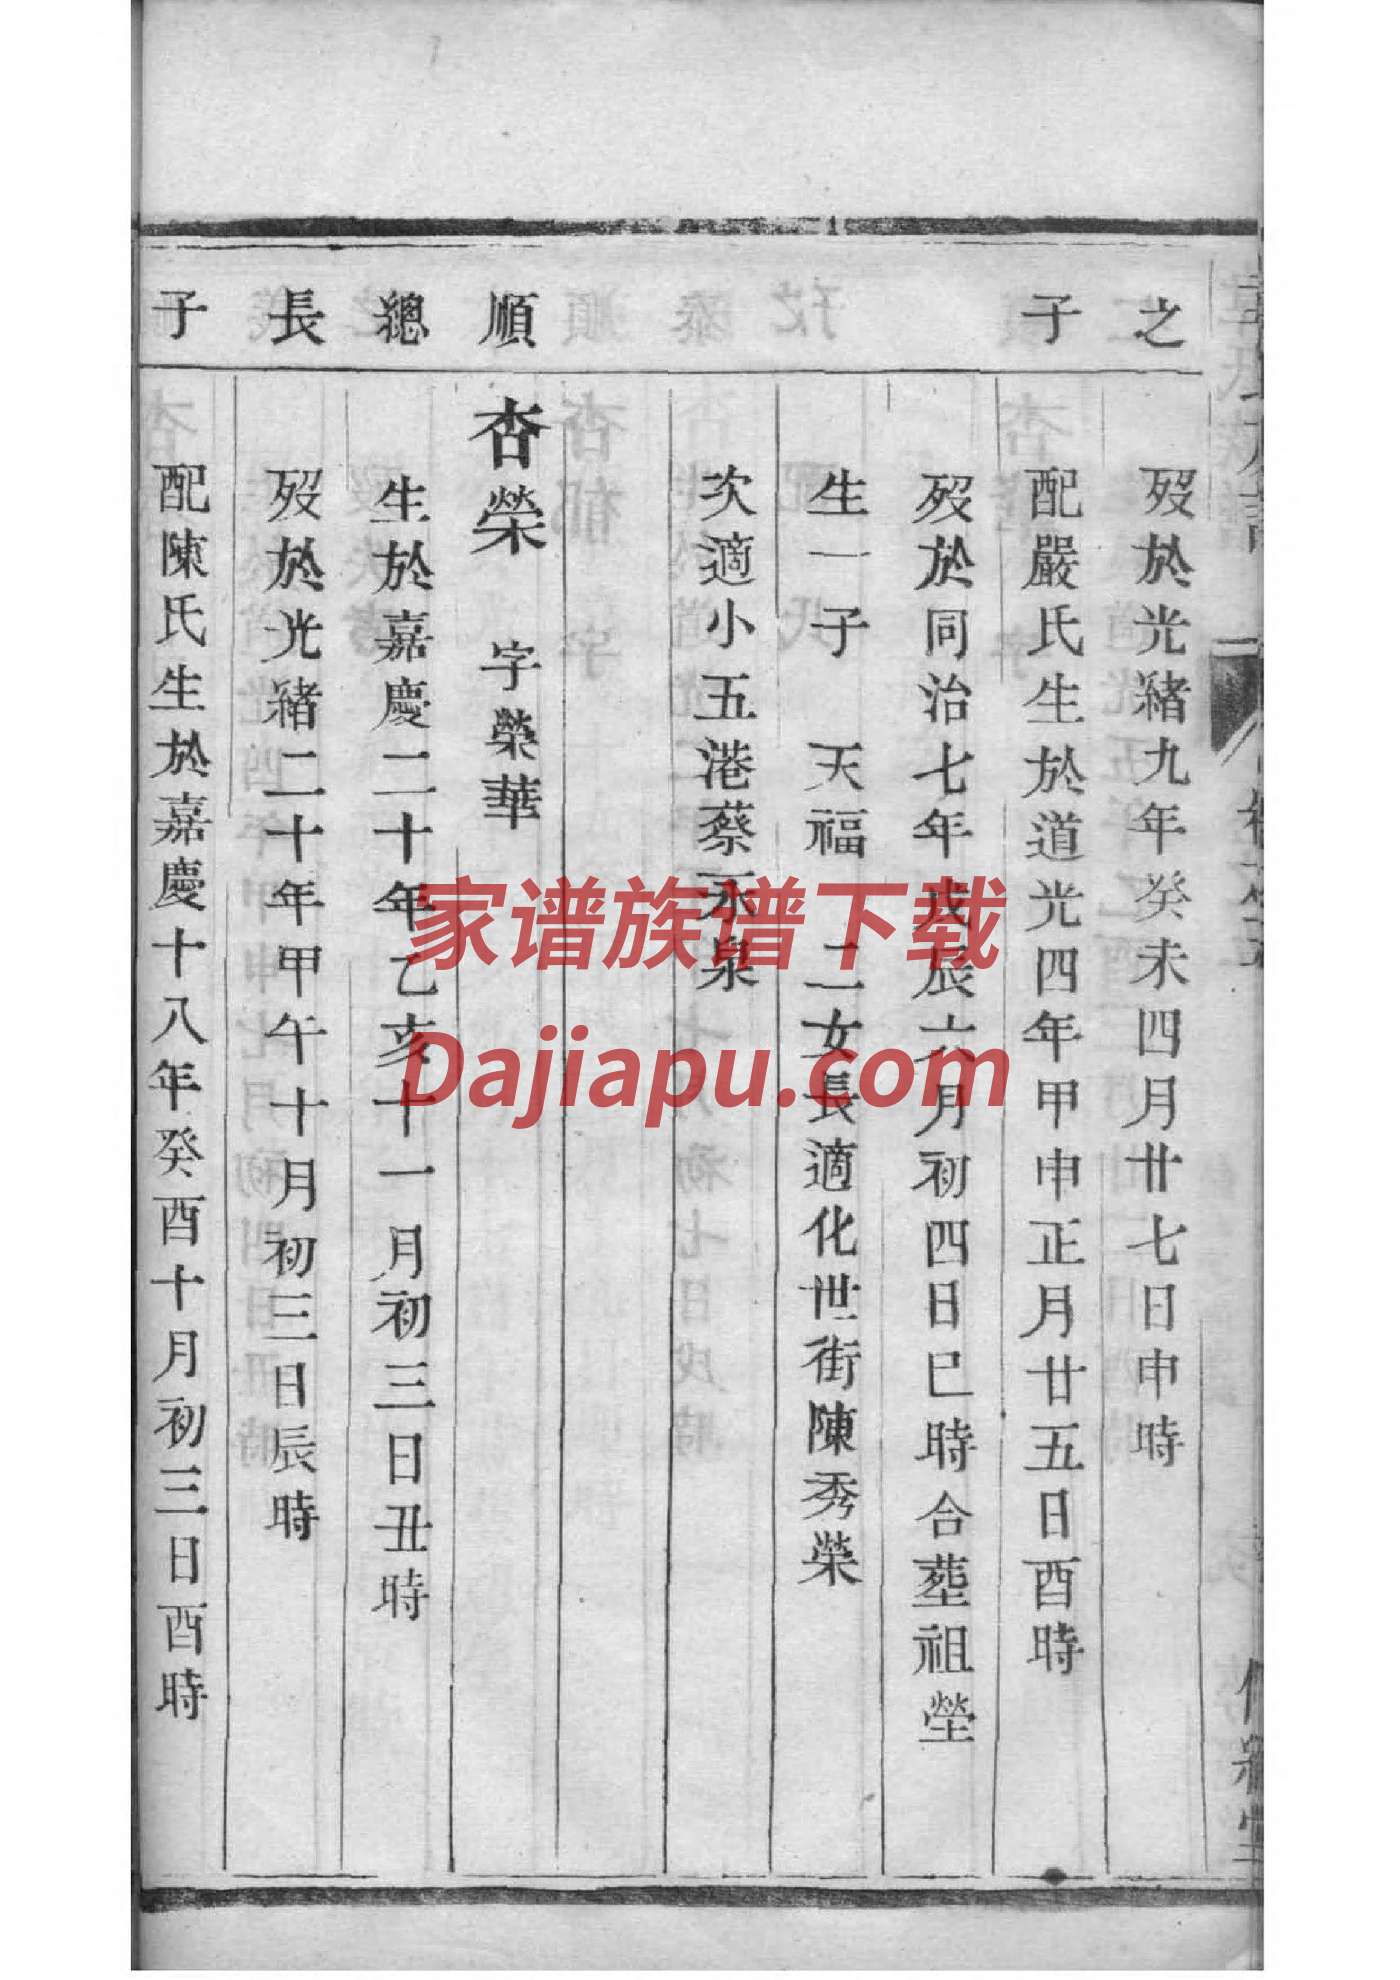 之
歿於光緒九年癸未四月廿七日申時
子
配嚴氏生於道光四年甲申正月廿五日酉時
歿於同治七年戊辰六月初四日巳時合塟祖塋
生一子 天福 二女長適化世街陳秀榮
次適小五港蔡永泉
順
杏榮 字榮華
總
生於嘉慶二十年乙亥十一月初三日丑時
長
歿於光緒二十年甲午十月初三日辰時
子
配陳氏生於嘉慶十八年癸酉十月初三日酉時
家谱族谱下载
Dajiapu.com